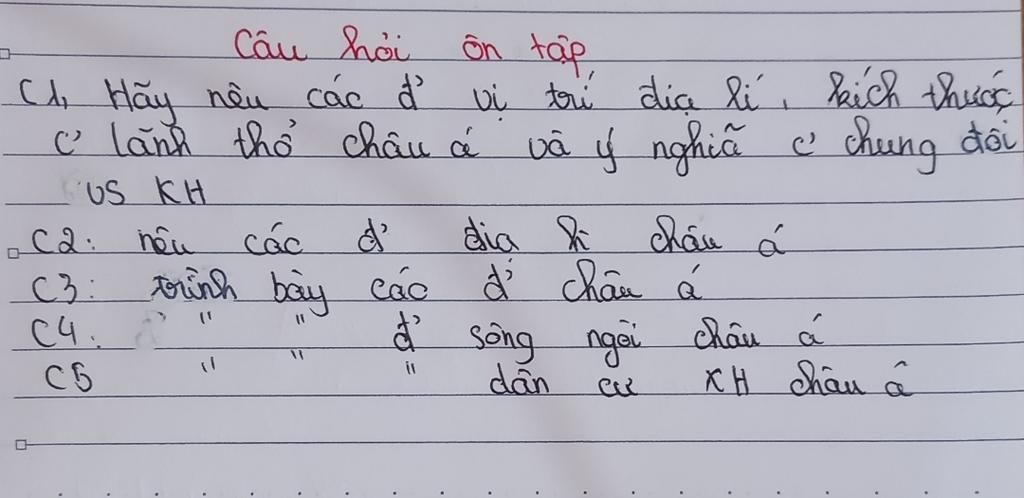 Câu hỏi ôn tập
C1, Hãy nêu các đ' vị trí địa lí, kích thước
c' lãnh thổ châu á và ý nghĩã c' chung đối
vs KH
C2: nêu các đ' địa lí châu á
C3: trình bày các đ' châu á
C4: " " đ' sông ngòi châu á
C5 " " " dân cư XH châu á